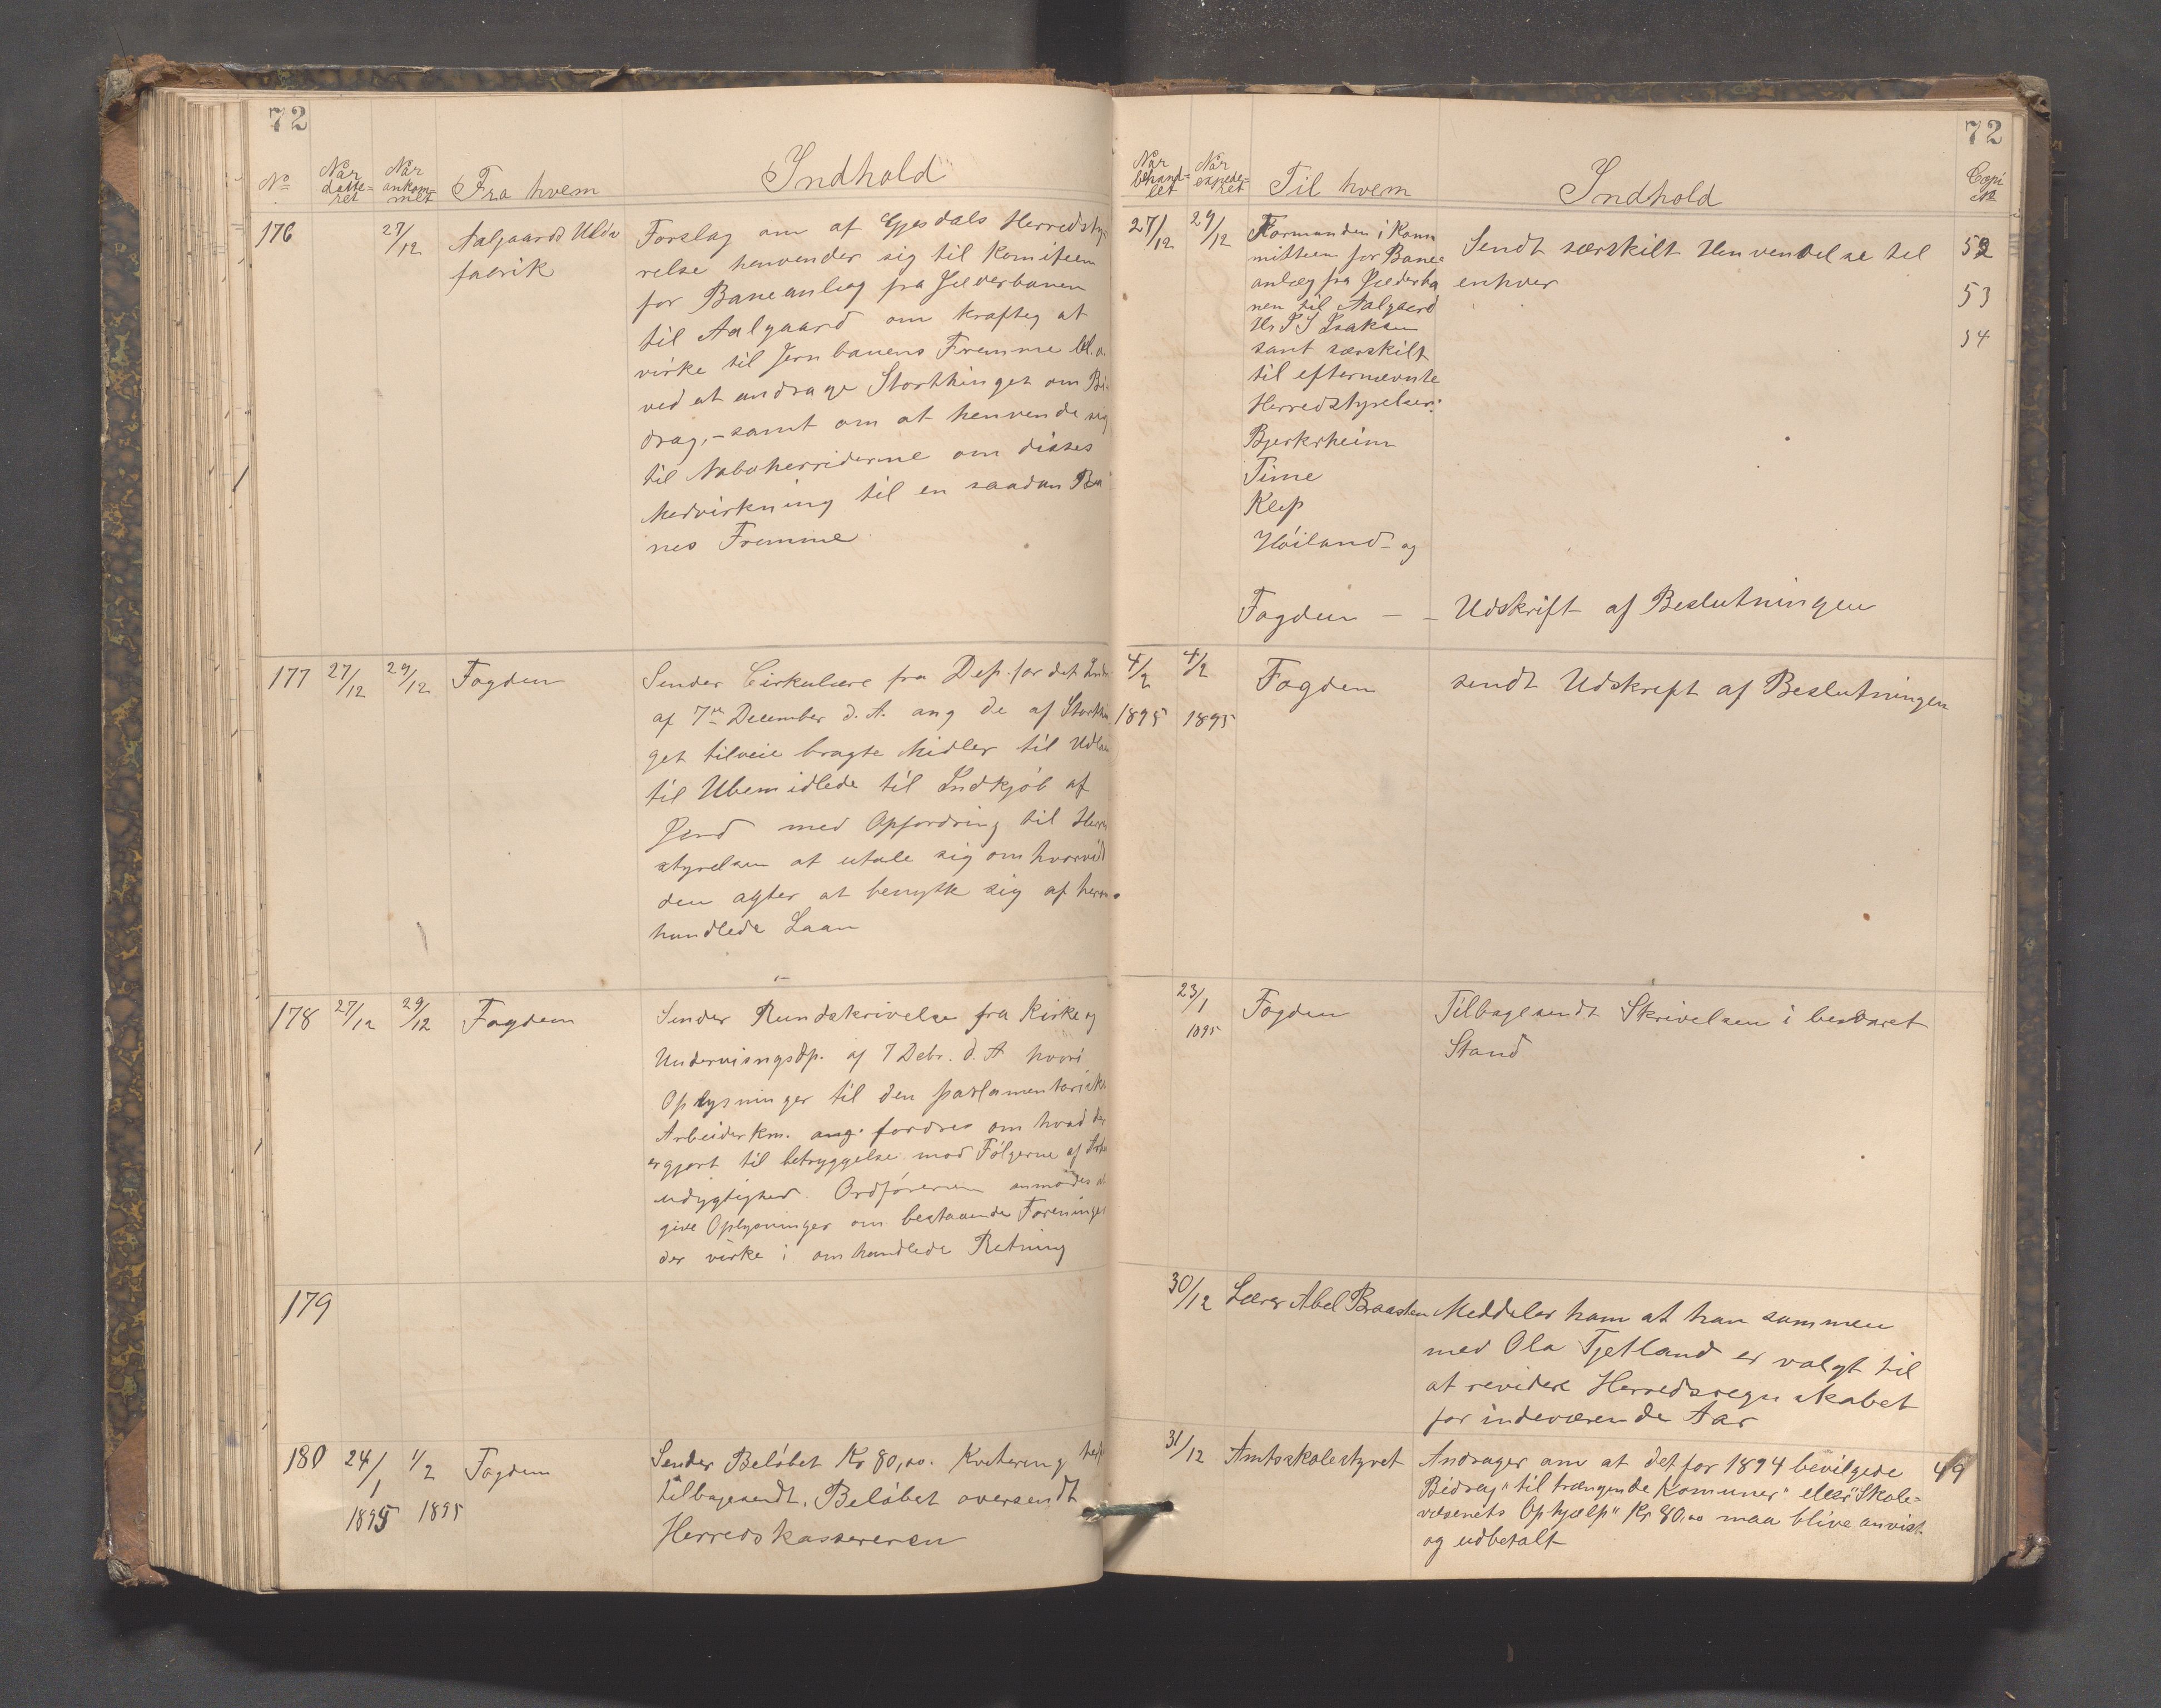 72
No
Når datte=ret
Når ankom=met
Fra hvem
Indhold
176
27/12
Aalgaards Uld
fabrik
Forslag om af Gjesdals Herredsty
relse henvender sig til Komiteen
for Baneanlæg fra Jæderbanen
til Aalgaard om kraftig at
virke til Jernbanens Fremme bl. a.
ved at andrage Storthinget om Bi-
drag, - samt om at henvende sig
til Naboherriderne om disses
Medvirkning til en saadan Ba
nes Fremme
177
27/12
29/12
Fogden
Sender Cirkulære fra Dep. for det Indr
af 7de December d. A. ang de af Storthin
get tilveie bragte Midler til Udlaan
til Ubemidlede til Indkjöb af
Jord med Opfordring til Herre
styrelsen at utale sig om hvorvidt
den agter at benytte sig af heron
handlede Laan
178
27/12
29/12
Fogden
Sender Rundskrivelse fra Kirke og
Undervisngsdp. af 7 Debr. d. A hvori
Oplysninger til den parlamentariske
Arbeiderkm. ang. fordres om hvad der
er gjort til betryggelse mod Fölgerne af Arb
udygtighed. Ordföreren anmodes at
give Oplysninger om bestaaende Foreninger
der virke i omhandlede Retning
179
180
24/1
1895
1/2
1895
Fogden
Sender Belöbet Kr 80,00. Kvitering
tilbagesendt. Belöbet oversendt
Herredskassereren
72
Når behand=let
Når expede=ret
Til hvem
Indhold
Copi
No
27/12
29/12
Formanden i Kom
mitteen for Bane=
anlæg fra Jæderba
nen til Aalgaard
Hr
samt særskilt
til efternævnte
Herredstyrelser:
Bjerkrheim
Time
Klep
Höiland - og
Sendt særskilt Henvendelse til
enhver
52
53
54
Fogden - - Udskrift af Beslutningen
4/2
1895
4/2
1895
Fogden
sendt Udskrift af Beslutningen
23/1
1895
Fogden
Tilbagesendt Skrivelsen i besvaret
Stand
30/12
Lærer Abel Braasten
Meddeler ham at han sammen
med Ola Tjetland er valgt til
at revidere Herredsregnskabet
for indeværende Aar
31/12
Amtsskolestyret
Andrager om at det for 1894 bevilgede
Bidrag "til trængende Komuner" eller "Skole=
væsenets Ophjælp" Kr 80,00 maa blive anvist
og udbetalt
49